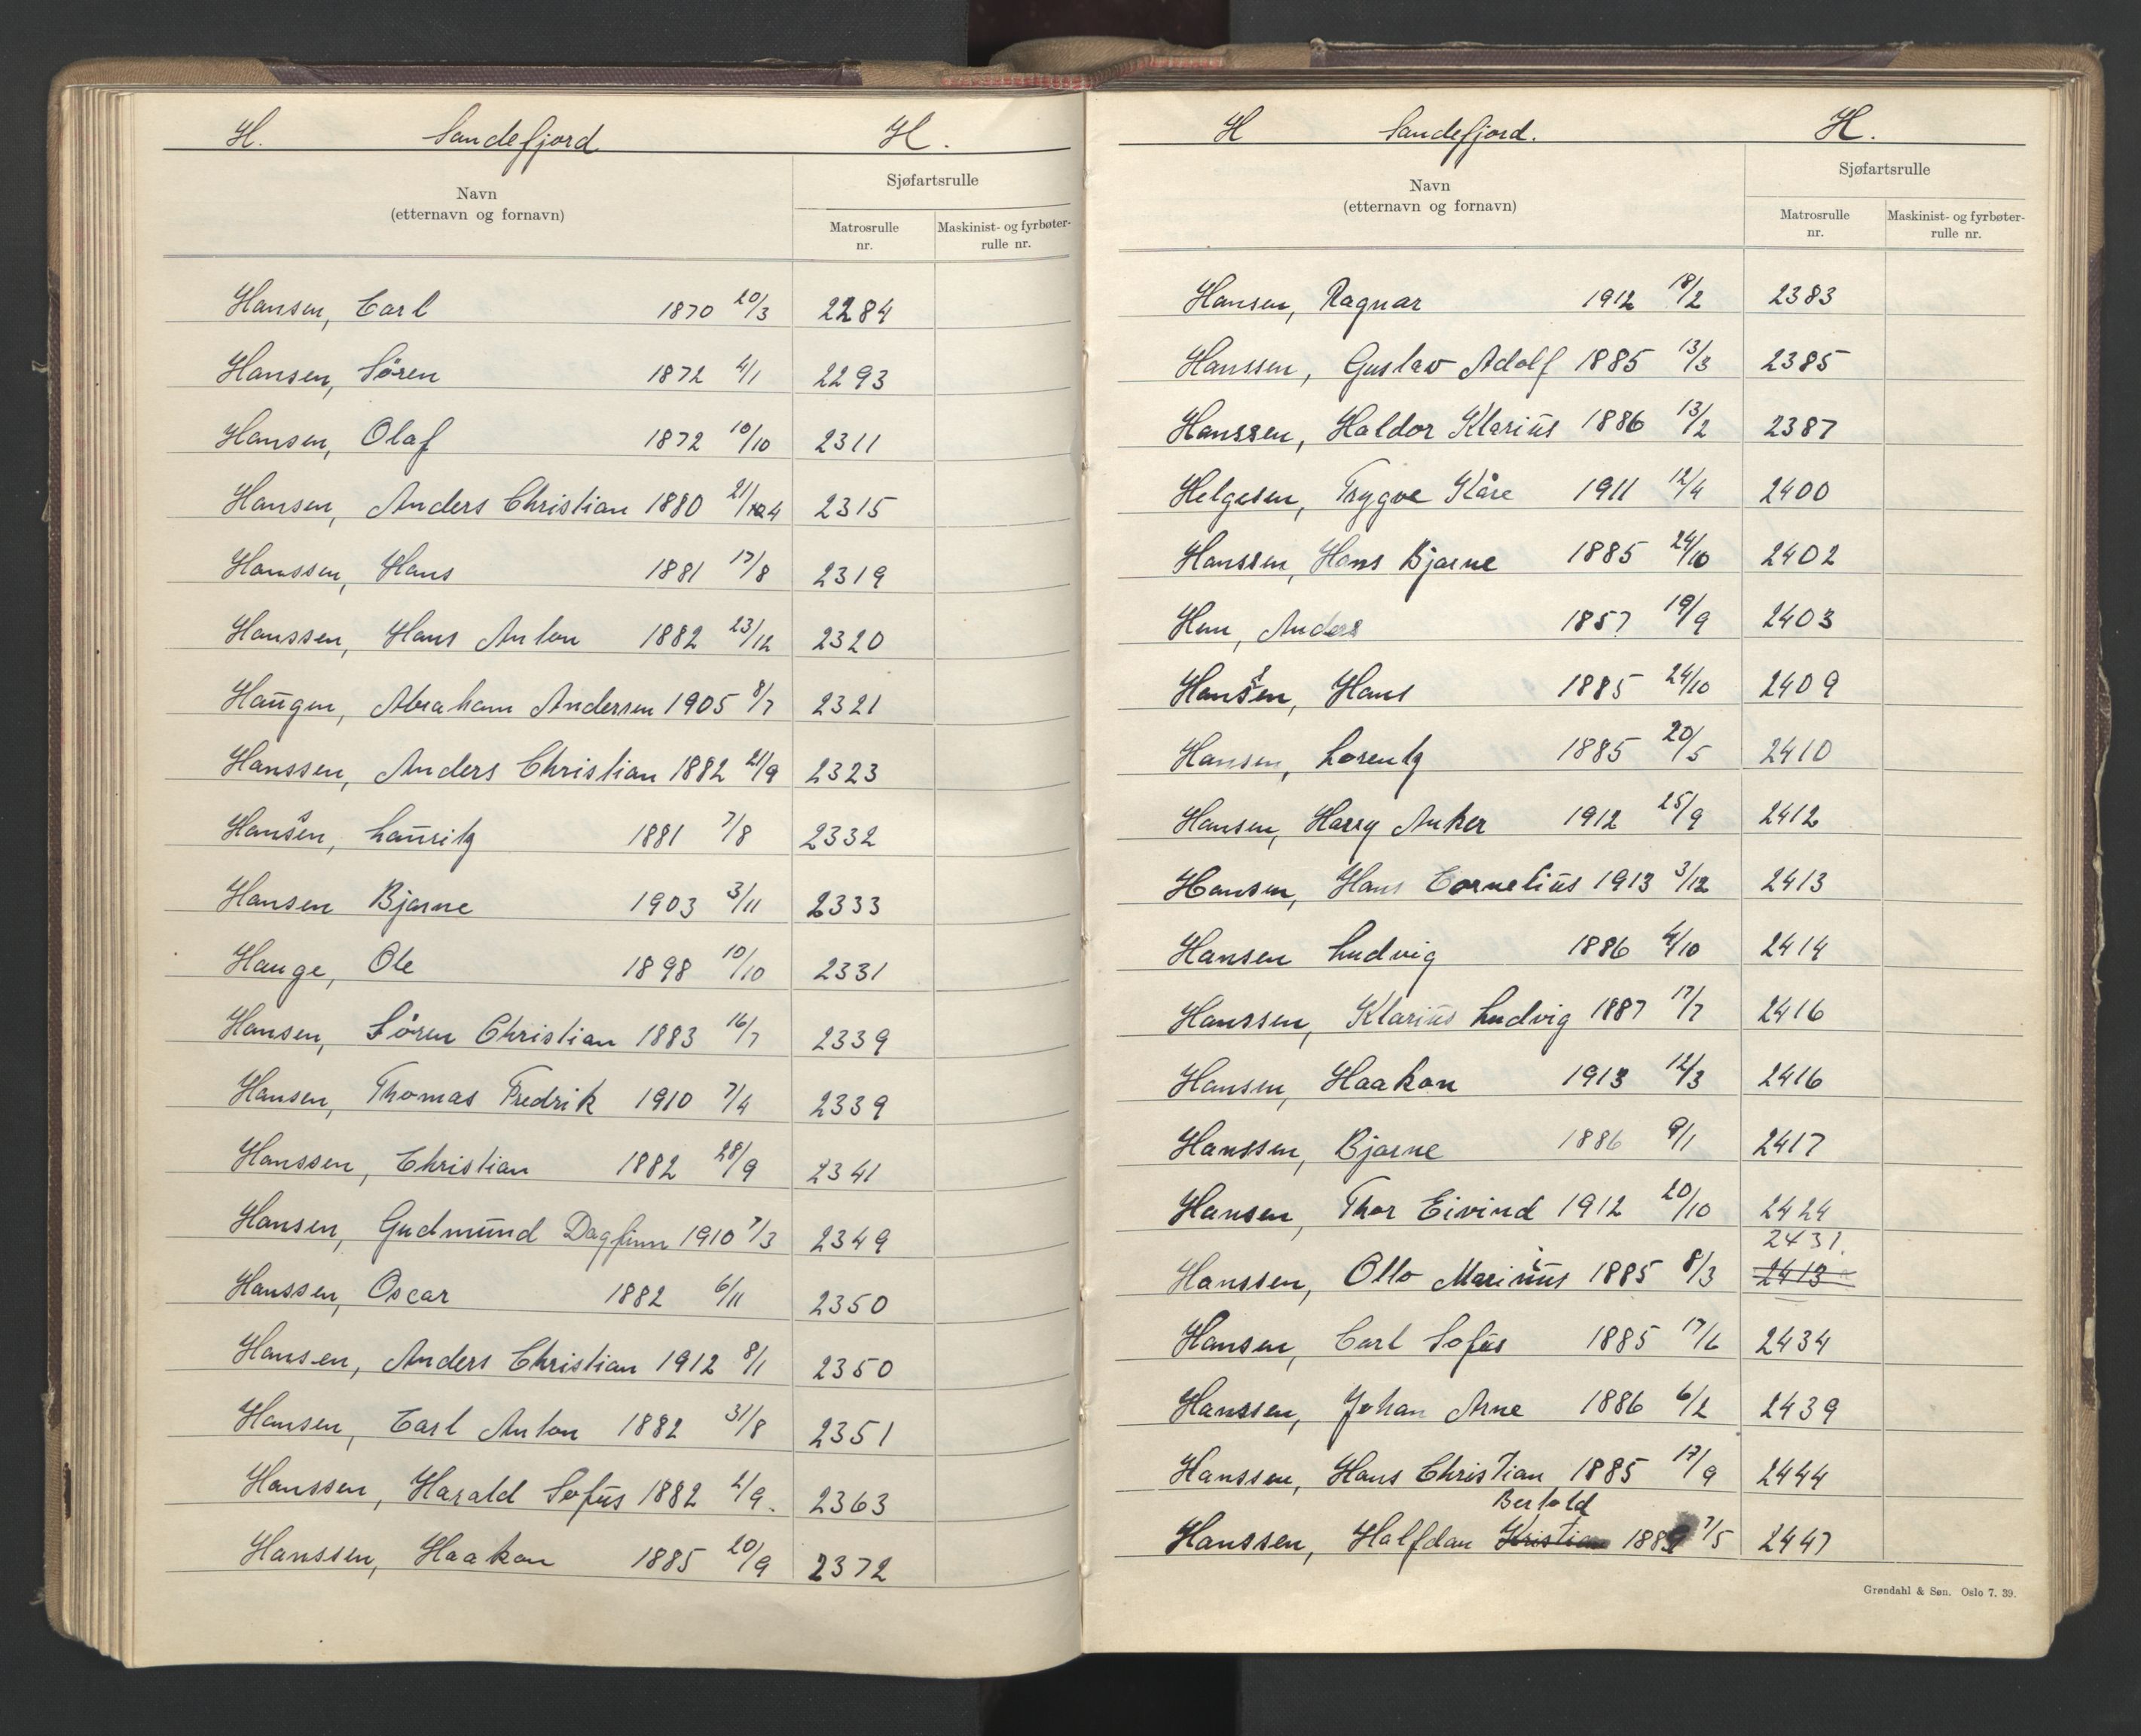 H. Sandefjord H.
Navn
(etternavn og fornavn)
Sjøfartsrulle
Matrosrulle
nr.
Maskinist- og fyrbøter-
rulle nr.
Hansen, Carl 1870 20/3 2284
Hansen, Søren 1872 4/1 2293
Hansen, Olaf 1872 10/10 2311
Hansen, Anders Christian 1880 21/4 2315
Hanssen, Hans 1881 17/8 2319
Hanssen, Hans Anton 1882 23/12 2320
Haugen, Abraham Andersen 1905 8/7 2321
Hanssen, Anders Christian 1882 21/9 2323
Hanssen, Lauritz 1881 7/8 2332
Hansen Bjarne 1903 3/11 2333
Hauge, Ole 1898 10/10 2331
Hansen, Søren Christian 1883 16/7 2339
Hansen, Thomas Fredrik 1910 7/4 2339
Hanssen, Christian 1882 28/9 2341
Hansen, Gudmund Dagfinn 1910 7/3 2349
Hanssen, Oscar 1882 6/11 2350
Hansen, Anders Christian 1912 8/1 2350
Hansen, Carl Anton 1882 31/8 2351
Hanssen, Harald Sofus 1882 2363
Hanssen, Haakon 1885 20/9 2372
H Sandefjord. H.
Navn
(etternavn og fornavn)
Sjøfartsrulle
Matrosrulle
nr.
Maskinist- og fyrbøter-
rulle nr.
Hansen, Ragnar 1912 18/2 2383
Hanssen, Gustav Adolf 1885 13/3 2385
Hanssen, Haldor Klarius 1886 13/2 2387
Helgesen, Trygve Kåre 1911 12/4 2400
Hanssen, Hans Bjarne 1885 24/10 2402
Hem, Anders 1857 19/9 2403
Hanssen, Hans 1885 24/10 2409
Hansen, Lorentz 1885 20/5 2410
Hansen, Harry Anker 1912 25/9 2412
Hansen, Hans Cornelius 1913 3/12 2413
Hansen Ludvig 1886 4/10 2414
Hanssen, Klarius Ludvig 1887 17/7 2416
Hansen, Haakon 1913 12/3 2416
Hanssen, Bjarne 1886 9/1 2417
Hansen, Thor Eivind 1912 20/10 2424
2431.
Hanssen, Otto Marinius 1885 8/3 2413
Hansen, Carl Sofus 1885 17/6 2434
Hanssen, Johan Arne 1886 6/2 2439
Hanssen, Hans Christian 1885 17/9 2444
Bertold
Hanssen, Halfdan Kristian 1889 7/5 2447
Grøndahl & Søn. Oslo 7. 39.